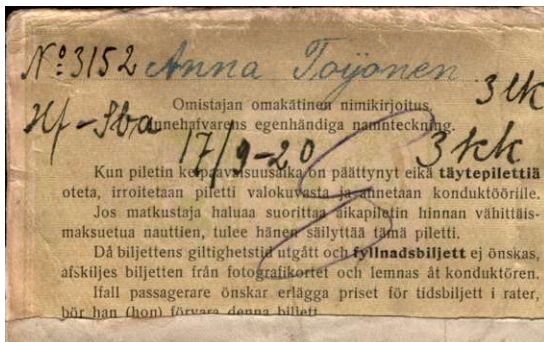 No 3152 Anna Toijonen
3 lk
Omistajan omakätinen nimikirjoitus.
Hf-Sba
Innehafvarens egenhändiga namnteckning.
17/9-20 3 kk
Kun piletin kelpaavaisuusaika on päättynyt eikä täytepilettiä
oteta, irroitetaan piletti valokuvasta ja annetaan konduktöörille.
Jos matkustaja haluaa suorittaa aikapiletin hinnan vähittäis-
maksuetua nauttien, tulee hänen säilyttää tämä piletti.
Då biljettens giltighetstid utgått och fyllnadsbiljett ej önskas,
afskiljes biljetten från fotografikortet och lemnas åt konduktören.
Ifall passagerare önskar erlägga priset för tidsbiljett i rater,
bör han (hon) förvara denna biljett